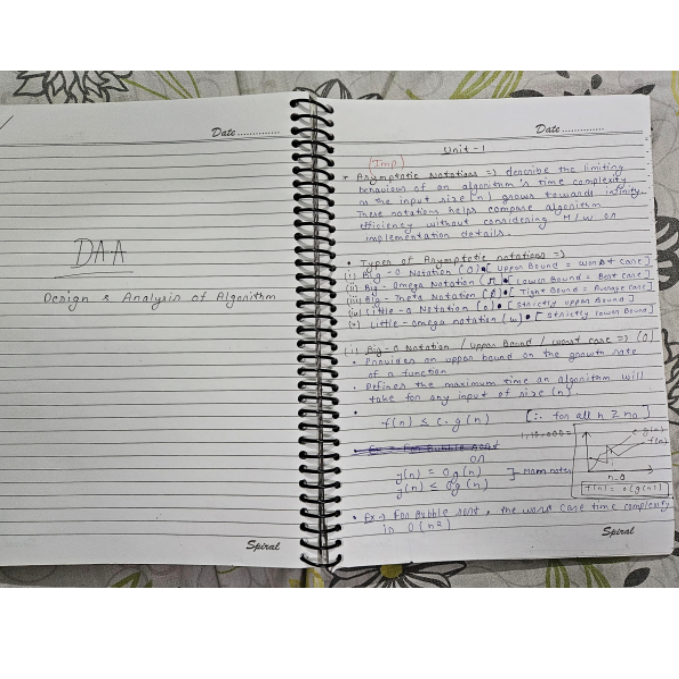 Date
DAA
Design & Analysis of Algorithm
Spiral
Date
Unit - 1
(Imp)
* Asymptotic Notations => describe the limiting
behaviour of an algorithm's time complexity
as the input size (n) grows towards infinity.
These notations helps compare algorithm
efficiency without considering H/W or
implementation details.
• Types of Asymptotic notations =>
(i) Big - O Notation (O) • [Upper Bound = worst case]
(ii) Big - Omega Notation (Ω) • [Lower Bound = Best case]
(iii) Big - Theta Notation (θ) • [Tight Bound = Average case]
(iv) Little - o Notation (o) • [strictly upper Bound]
(v) Little - omega notation (ω) • [strictly lower Bound]
(i) Big - O Notation / upper Bound / worst case => (O)
• Provides an upper bound on the growth rate
of a function
• Defines the maximum time an algorithm will
take for any input of size (n).
• f(n) ≤ c. g(n) [∴ for all n ≥ n₀]
Ex = For Bubble sort
or
g(n) = Og(n)
g(n) ≤ Og(n)
g(n)
f(n)
n=0
• Ex → For Bubble sort, the worst case time complexity
is O(n²)
Spiral